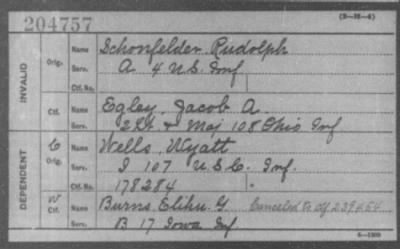 204757
(3-III-4)
INVALID
Orig.
Name Schonfelder Rudolph
Serv. A 4 U.S. Inf
Ctf. No.
Ctf.
Name Egley, Jacob A.
Serv. 2Lt + Maj 108 Ohio Inf
DEPENDENT
C
Orig.
Name Wells, Wyatt
Serv. I 107 U.S.C. Inf.
Ctf. No. 178284
W
Ctf.
Name Burns, Elihu G Canceled to Ctf 239454
Serv. B 17 Iowa Inf